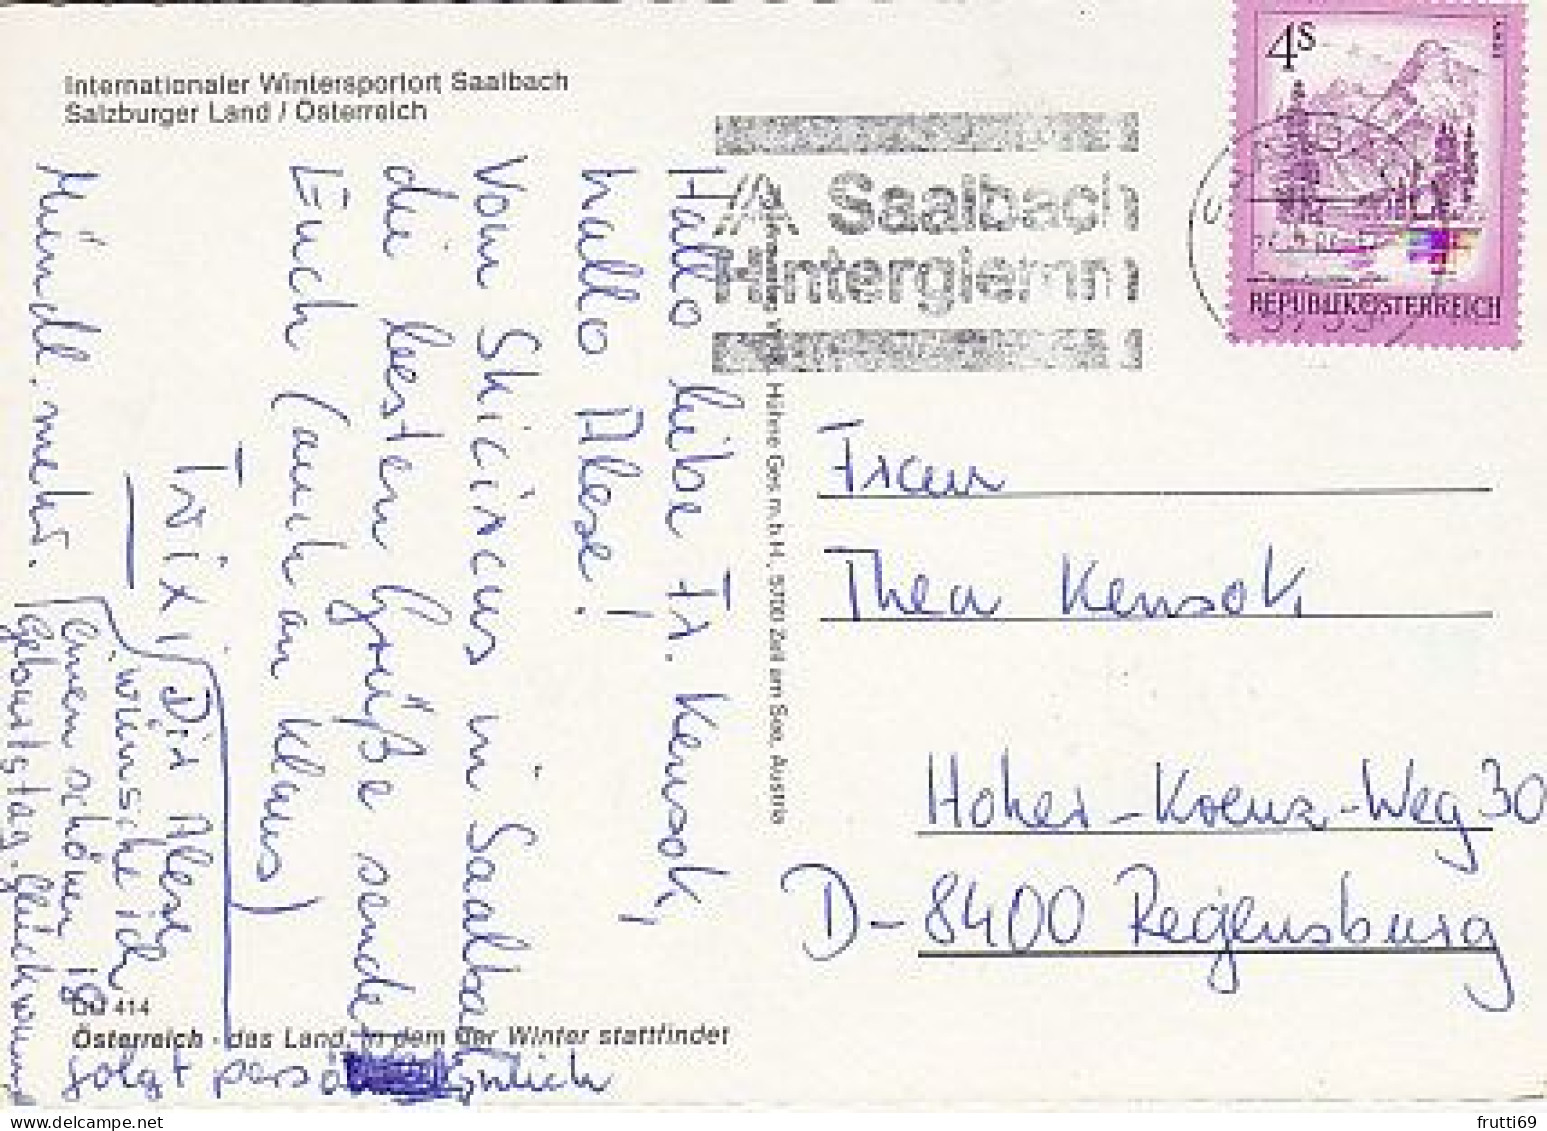 Internationaler Wintersportort Saalbach
Salzburger Land / Österreich
4S
REPUBLIK ÖSTERREICH
Saalbach
Hinterglemm
Hallo liebe Fr. Kensok,
hallo Alese!
Vom Skicircus in Saalbach
die besten Grüße sendet
Euch (auch an Klaus)
Trixi
Mündl. mehr.
Dir Alese
wünsche ich
einen schönen 18.
Geburtstag. Glückwunsch
folgt persönlich
Hühne Ges.m.b.H., 5700 Zell am See, Austria
Frau
Thea Kensok
Hoher-Kreuz-Weg 30
D-8400 Regensburg
414
Österreich - das Land, in dem der Winter stattfindet
frutti69